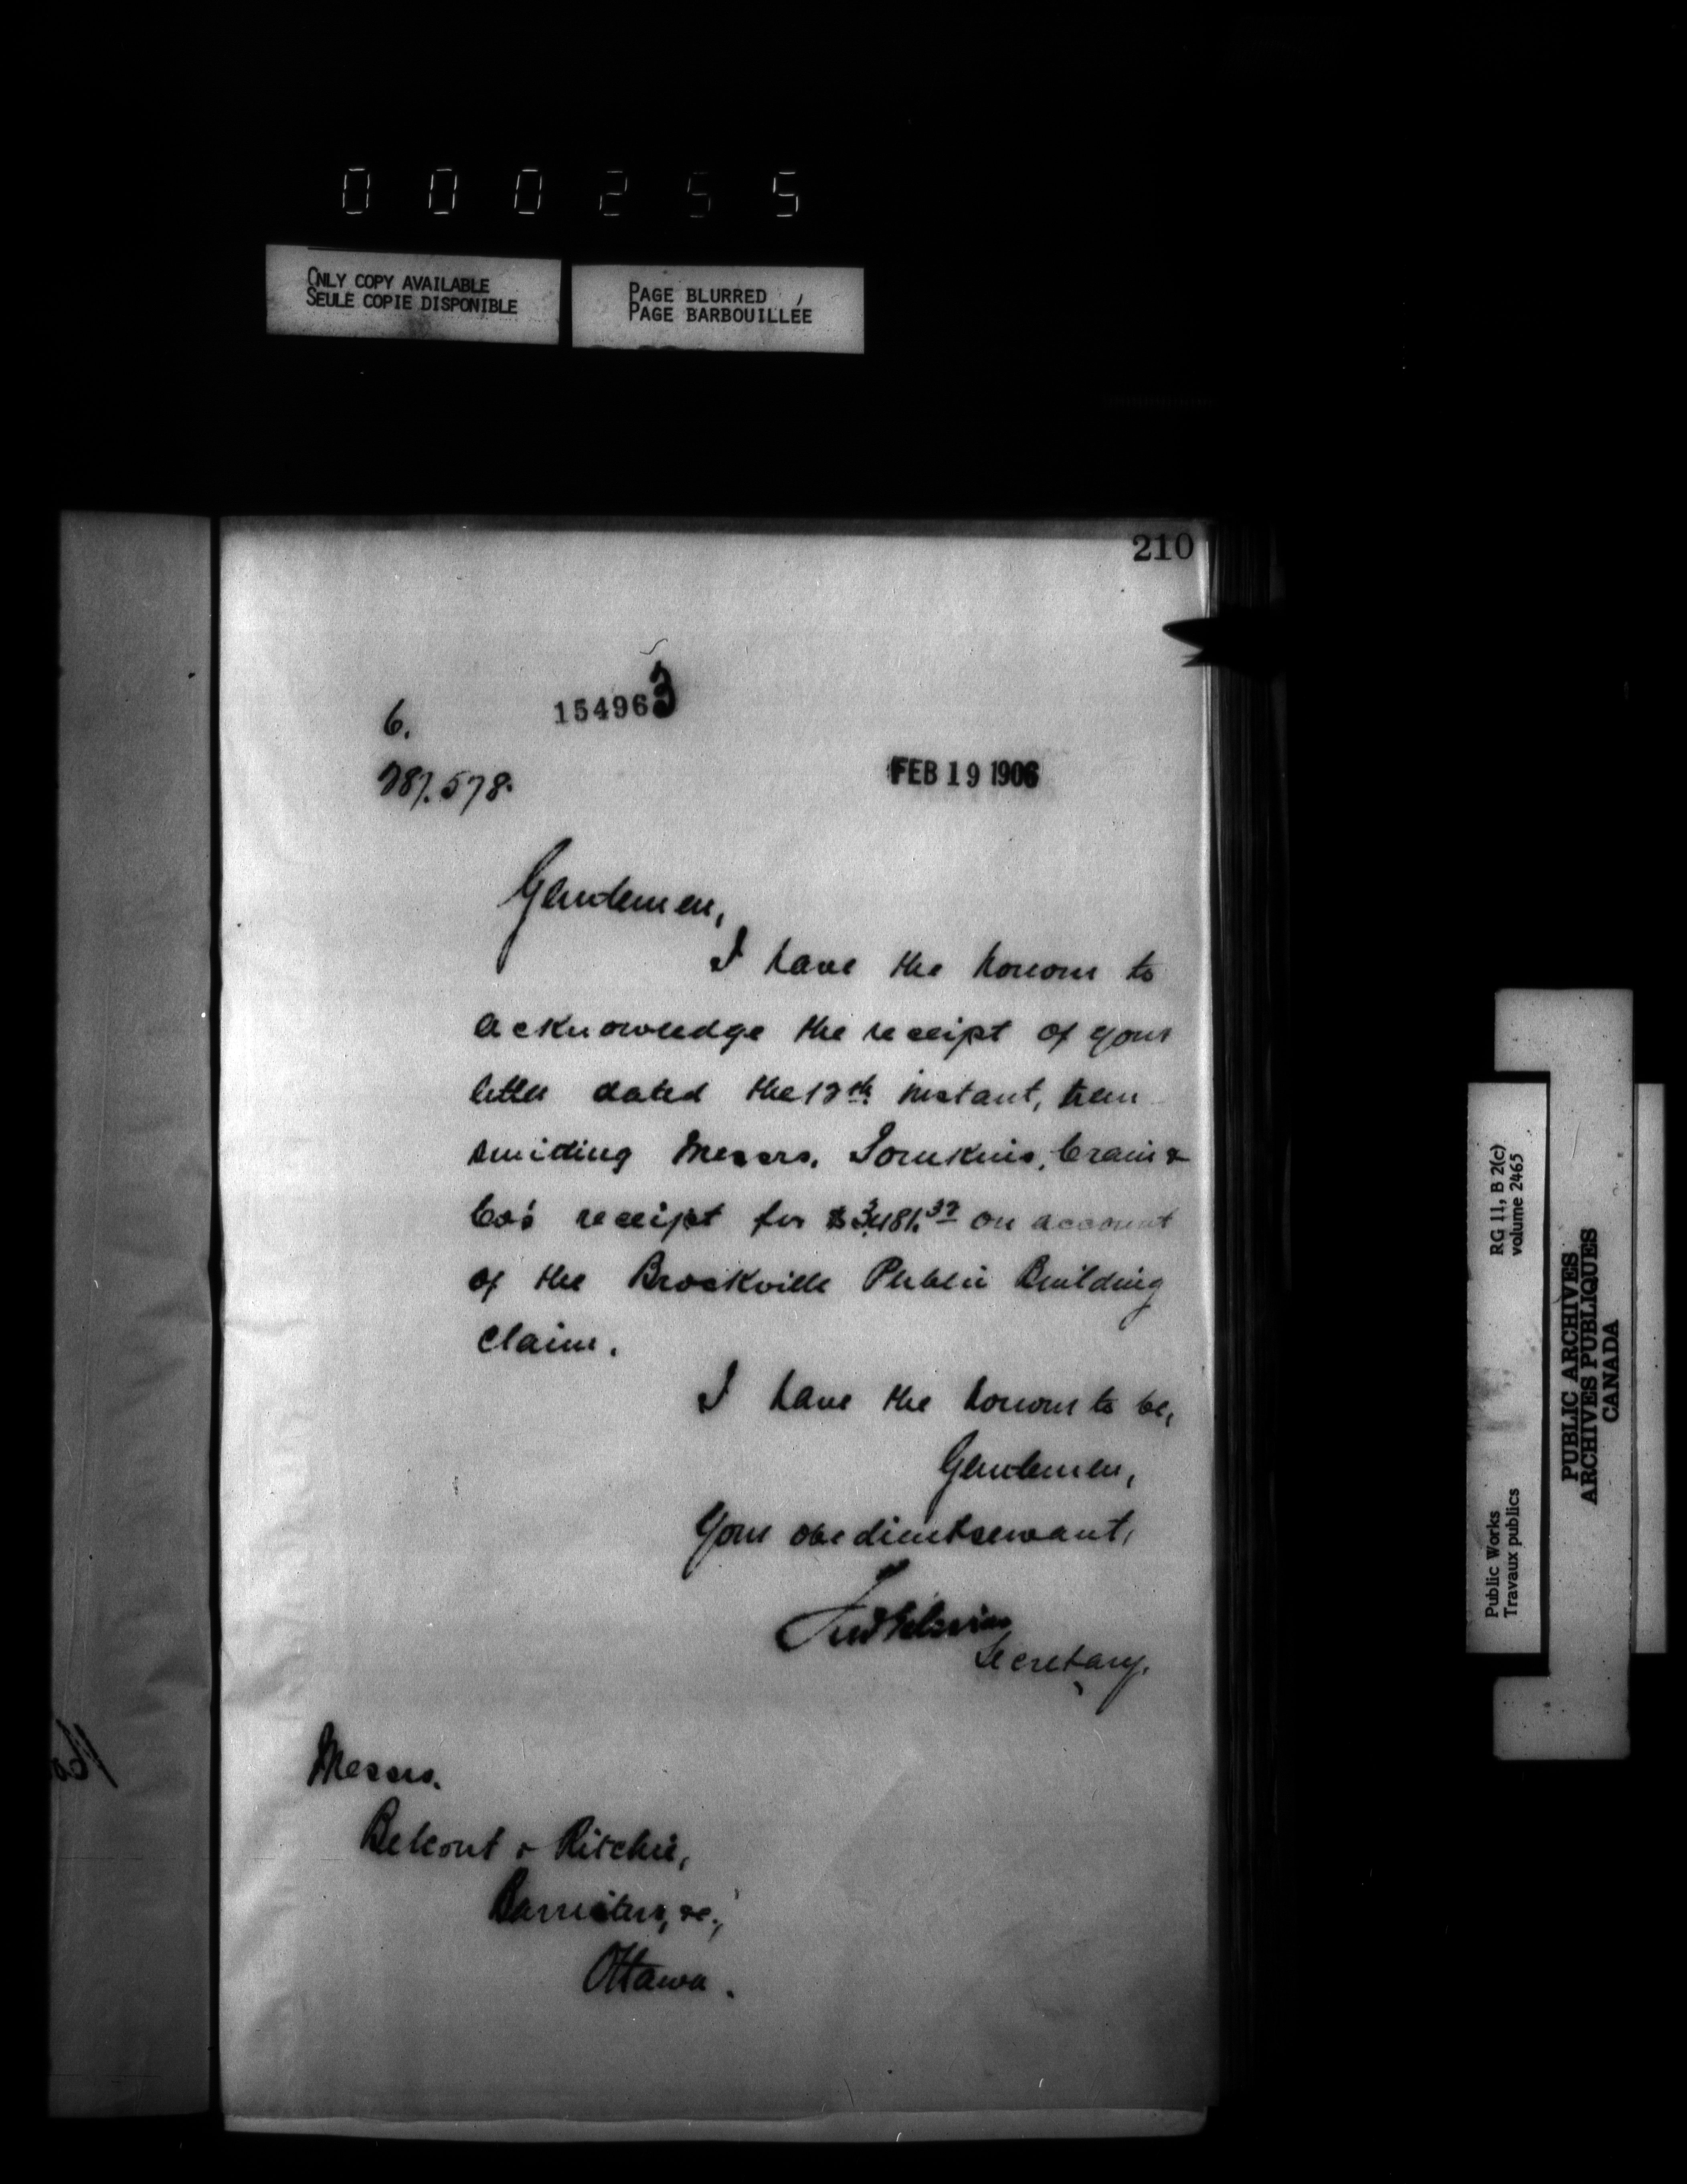 000255
ONLY COPY AVAILABLE
SEULE COPIE DISPONIBLE
PAGE BLURRED
PAGE BARBOUILLÉE
210
6.
154963
FEB 19 1906
Gentlemen,
I have the honour to
acknowledge the receipt of your
letter dated the instant, tran
smitting Messrs. Tomkins, Crain &
Co's receipt for on account
of the Brockville Public Building
claim.
I have the honour to be,
Gentlemen,
Your obedient servant,
Secretary.
Messrs.
Belcourt & Ritchie,
Barristers, &c.,
Ottawa.
RG 11, B 2(c)
volume 2465
Public Works
Travaux publics
PUBLIC ARCHIVES
ARCHIVES PUBLIQUES
CANADA